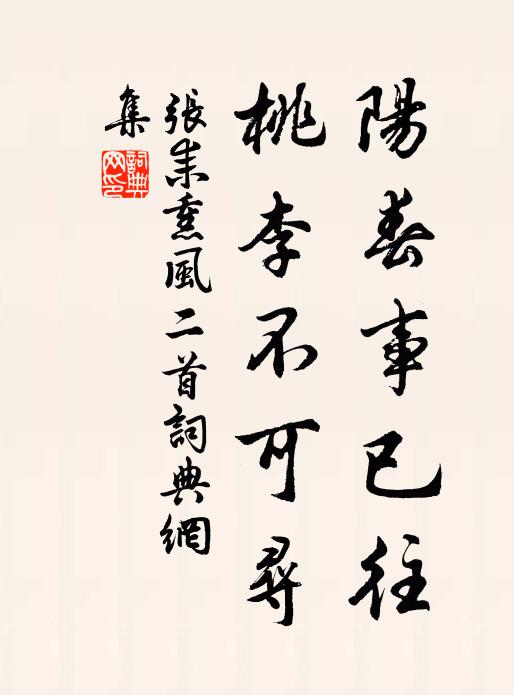 陽春事已往
桃李不可尋
張耒熏風二首詞典網
集
詞典
网印